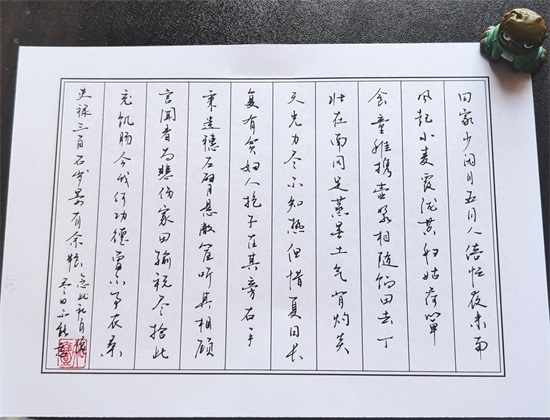 田家少闲月五月人倍忙夜来南
风起小麦覆陇黄妇姑荷箪
食童稚携壶浆相随饷田去丁
壮在南冈足蒸暑土气背灼炎
天光力尽不知热但惜夏日长
复有贫妇人抱子在其旁右手
秉遗穗左臂悬敝筐听其相顾
言闻者为悲伤家田输税尽拾此
充饥肠今我何功德曾不事农桑
吏禄三百石岁晏有余粮
念此私自愧
尽日不能忘